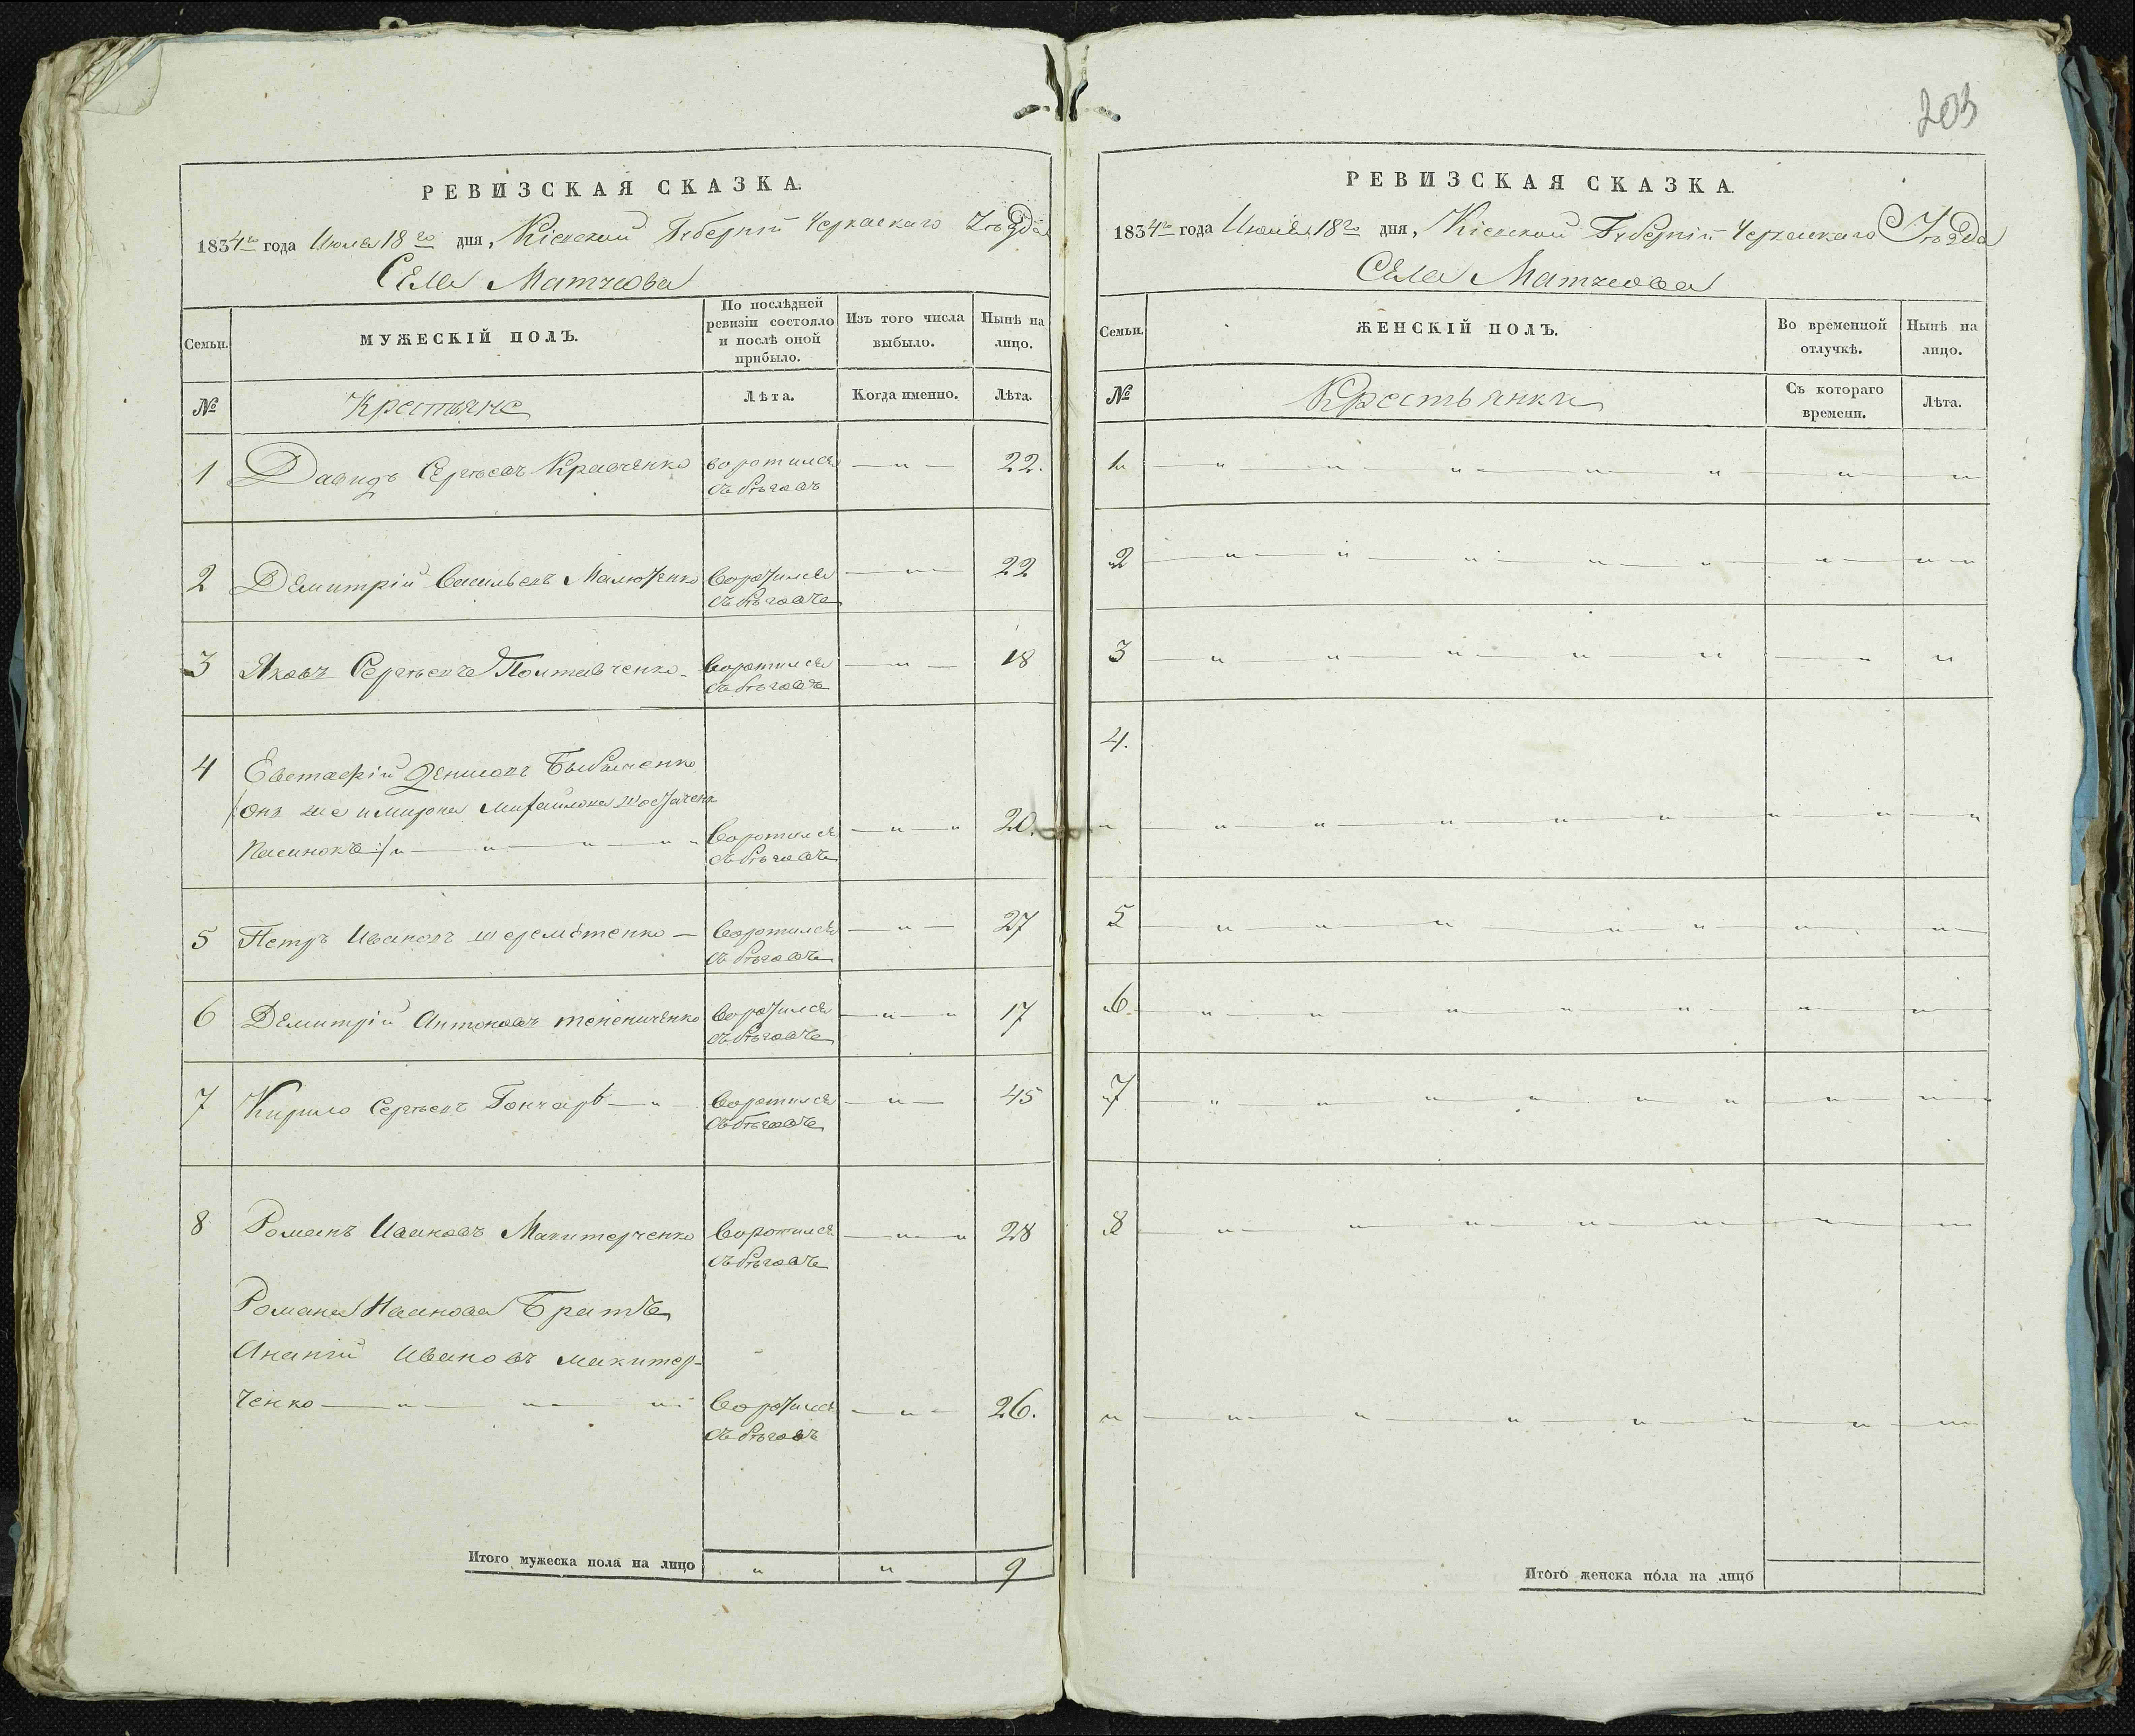 РЕВИЗСКАЯ СКАЗКА.
1834го года Июля 18го дня, Кіевской Губерніи Черкаскаго Уѣзда
Села Матусова
Семьи.
МУЖЕСКІЙ ПОЛЪ.
По послѣдней ревизіи состояло и послѣ оной прибыло.
Изъ того числа выбыло.
Нынѣ на лицо.
№
Крестьяне
Лѣта.
Когда именно.
Лѣта.
1 Давидъ Сергѣевъ Кравченко воротился — „ — 22.
съ бѣговъ
2 Демитрій Васильевъ воротился — „ — 22
съ бѣговъ
3 Яковъ Сергѣевъ Полтавченко воротился — „ — 18
съ бѣговъ
4 Евстафій Денисовъ
онъ же и Мирона Михайлова
пасинокъ — „ — „ — „ — „ воротился — „ — „ 20.
съ бѣговъ
5 Петръ Ивановъ Шереметенко — воротился — „ — 27
съ бѣговъ
6 Демитрій Антоновъ воротился — „ — „ 17
съ бѣговъ
7 Кирило Сергѣевъ Гончаръ — „ — воротился — „ — 45
съ бѣговъ
8 Романъ Ивановъ Макитерченко воротился — „ — „ 28
съ бѣговъ
Романа Иванова Братъ
Ананій Ивановъ Макитер-
ченко — „ — „ — „ воротился — „ — 26.
съ бѣговъ
Итого мужеска пола на лицо „ „ 9
203
РЕВИЗСКАЯ СКАЗКА.
1834го года Июля 18го дня, Кіевской Губерніи Черкаскаго Уѣзда
Села Матусова
Семьи.
ЖЕНСКІЙ ПОЛЪ.
Во временной отлучкѣ.
Нынѣ на лицо.
№
Крестьянки
Съ котораго времени.
Лѣта.
1 — „ — „ — „ — „ — „ — „ — „
2 — „ — „ — „ — „ — „ — „ — „
3 „ „ „ — „ — „ — „ „
4.
„ — „ — „ — „ — „ — „ — „ — „ — „
5 „ „ — „ — „ — „ — „ — „ —
6. — „ — „ „ „ „ „ „ —
7 „ „ „ „ „ „ — „ — „ —
8 — „ — „ — „ — „ — „ — „ — „ —
„ — „ — „ — „ — „ — „ — „ — „ —
Итого женска пола на лицо